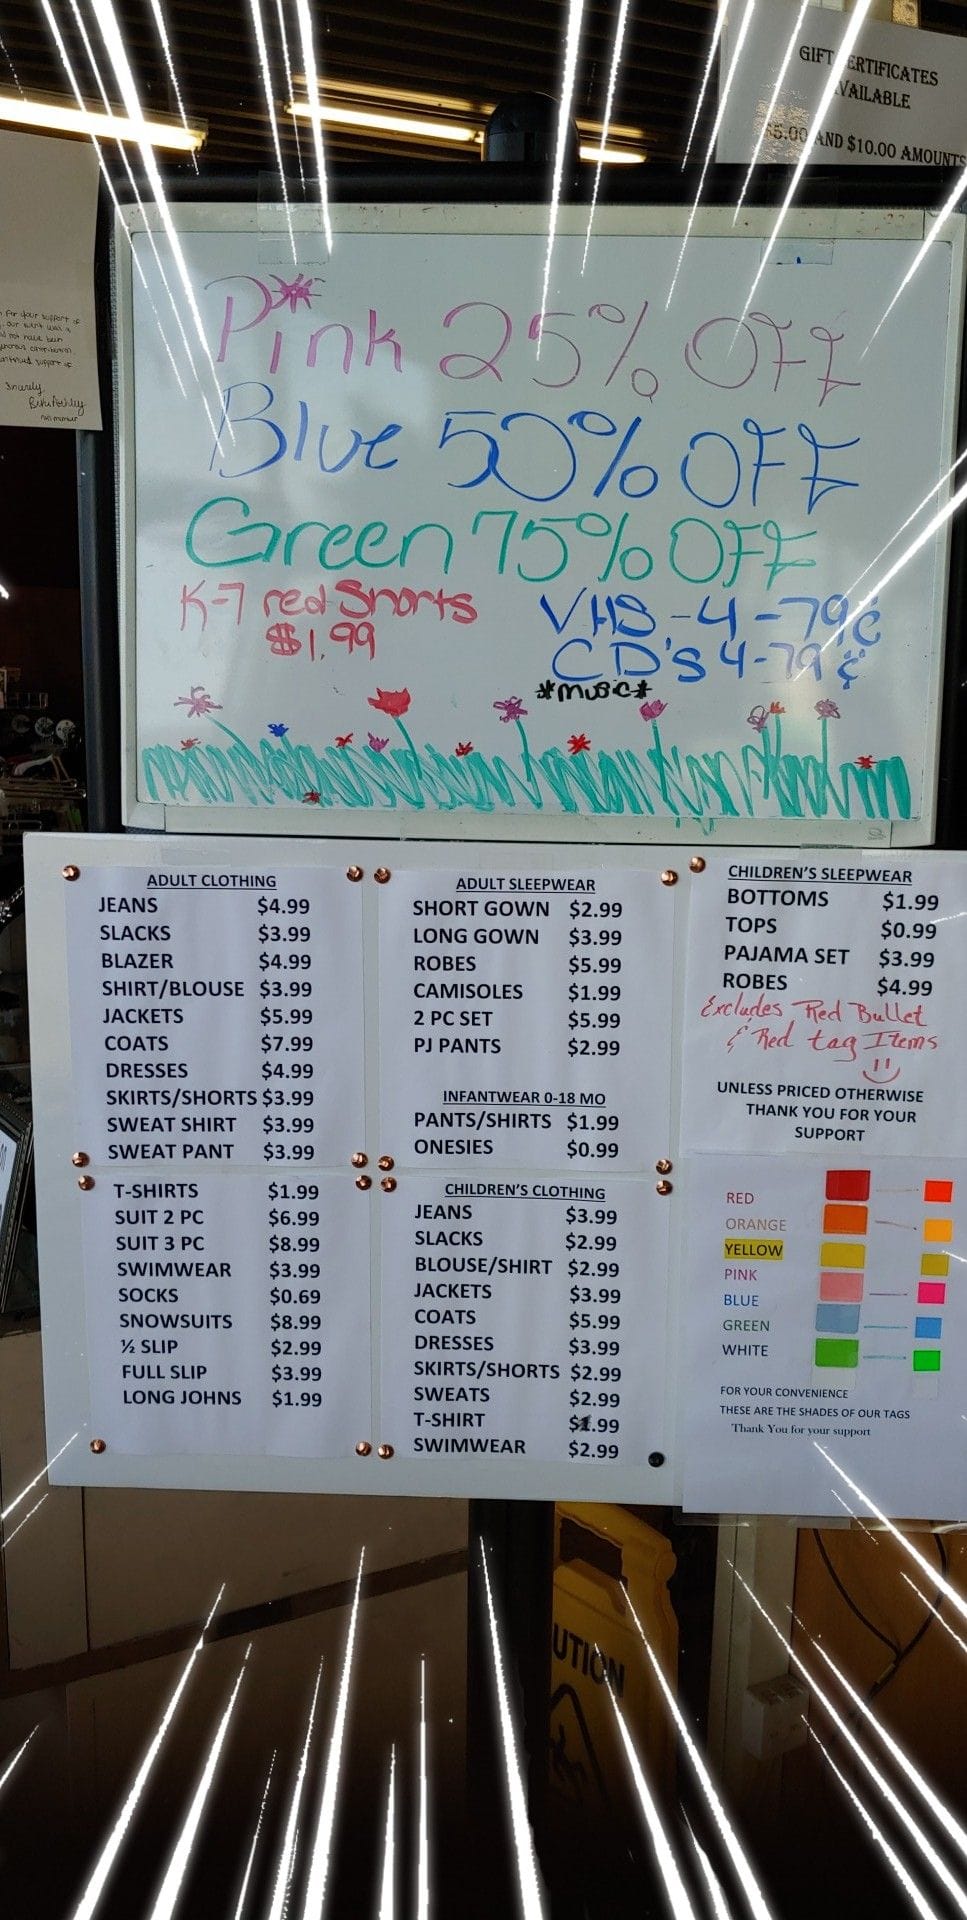 GIFT CERTIFICATES
AVAILABLE
$5.00 AND $10.00 AMOUNTS
for your support of
our
not have been
support of
Pink 25% OFF
Blue 50% OFF
Green 75% OFF
K-7 red Shorts
$1.99
VHS-4-79¢
CD's 4-79¢
*music*
ADULT CLOTHING
JEANS $4.99
SLACKS $3.99
BLAZER $4.99
SHIRT/BLOUSE $3.99
JACKETS $5.99
COATS $7.99
DRESSES $4.99
SKIRTS/SHORTS $3.99
SWEAT SHIRT $3.99
SWEAT PANT $3.99
T-SHIRTS $1.99
SUIT 2 PC $6.99
SUIT 3 PC $8.99
SWIMWEAR $3.99
SOCKS $0.69
SNOWSUITS $8.99
½ SLIP $2.99
FULL SLIP $3.99
LONG JOHNS $1.99
ADULT SLEEPWEAR
SHORT GOWN $2.99
LONG GOWN $3.99
ROBES $5.99
CAMISOLES $1.99
2 PC SET $5.99
PJ PANTS $2.99
INFANTWEAR 0-18 MO
PANTS/SHIRTS $1.99
ONESIES $0.99
CHILDREN'S CLOTHING
JEANS $3.99
SLACKS $2.99
BLOUSE/SHIRT $2.99
JACKETS $3.99
COATS $5.99
DRESSES $3.99
SKIRTS/SHORTS $2.99
SWEATS $2.99
T-SHIRT $1.99
SWIMWEAR $2.99
CHILDREN'S SLEEPWEAR
BOTTOMS $1.99
TOPS $0.99
PAJAMA SET $3.99
ROBES $4.99
Excludes Red Bullet
& Red tag Items
UNLESS PRICED OTHERWISE
THANK YOU FOR YOUR
SUPPORT
RED
ORANGE
YELLOW
PINK
BLUE
GREEN
WHITE
FOR YOUR CONVENIENCE
THESE ARE THE SHADES OF OUR TAGS
Thank You for your support
UTION